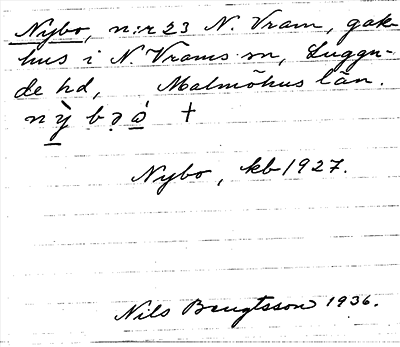 Nybo, n:r 23 N. Vram, gat-
hus i N. Vrams sn, Luggu-
de hd, Malmöhus län.
nỳ bǝó +
Nybo, kb 1927.
Nils Bengtsson 1936.